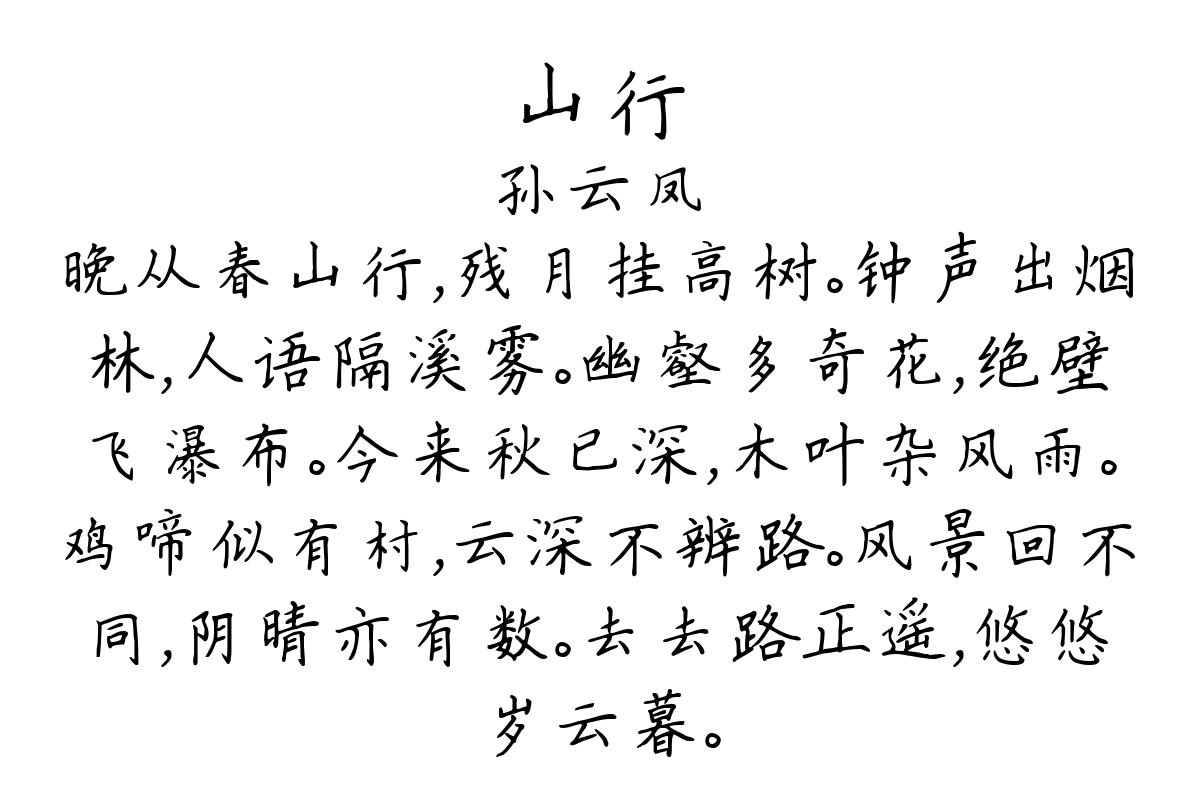 山行
孙云凤
晚从春山行,残月挂高树。钟声出烟
林,人语隔溪雾。幽壑多奇花,绝壁
飞瀑布。今来秋已深,木叶杂风雨。
鸡啼似有村,云深不辨路。风景回不
同,阴晴亦有数。去去路正遥,悠悠
岁云暮。